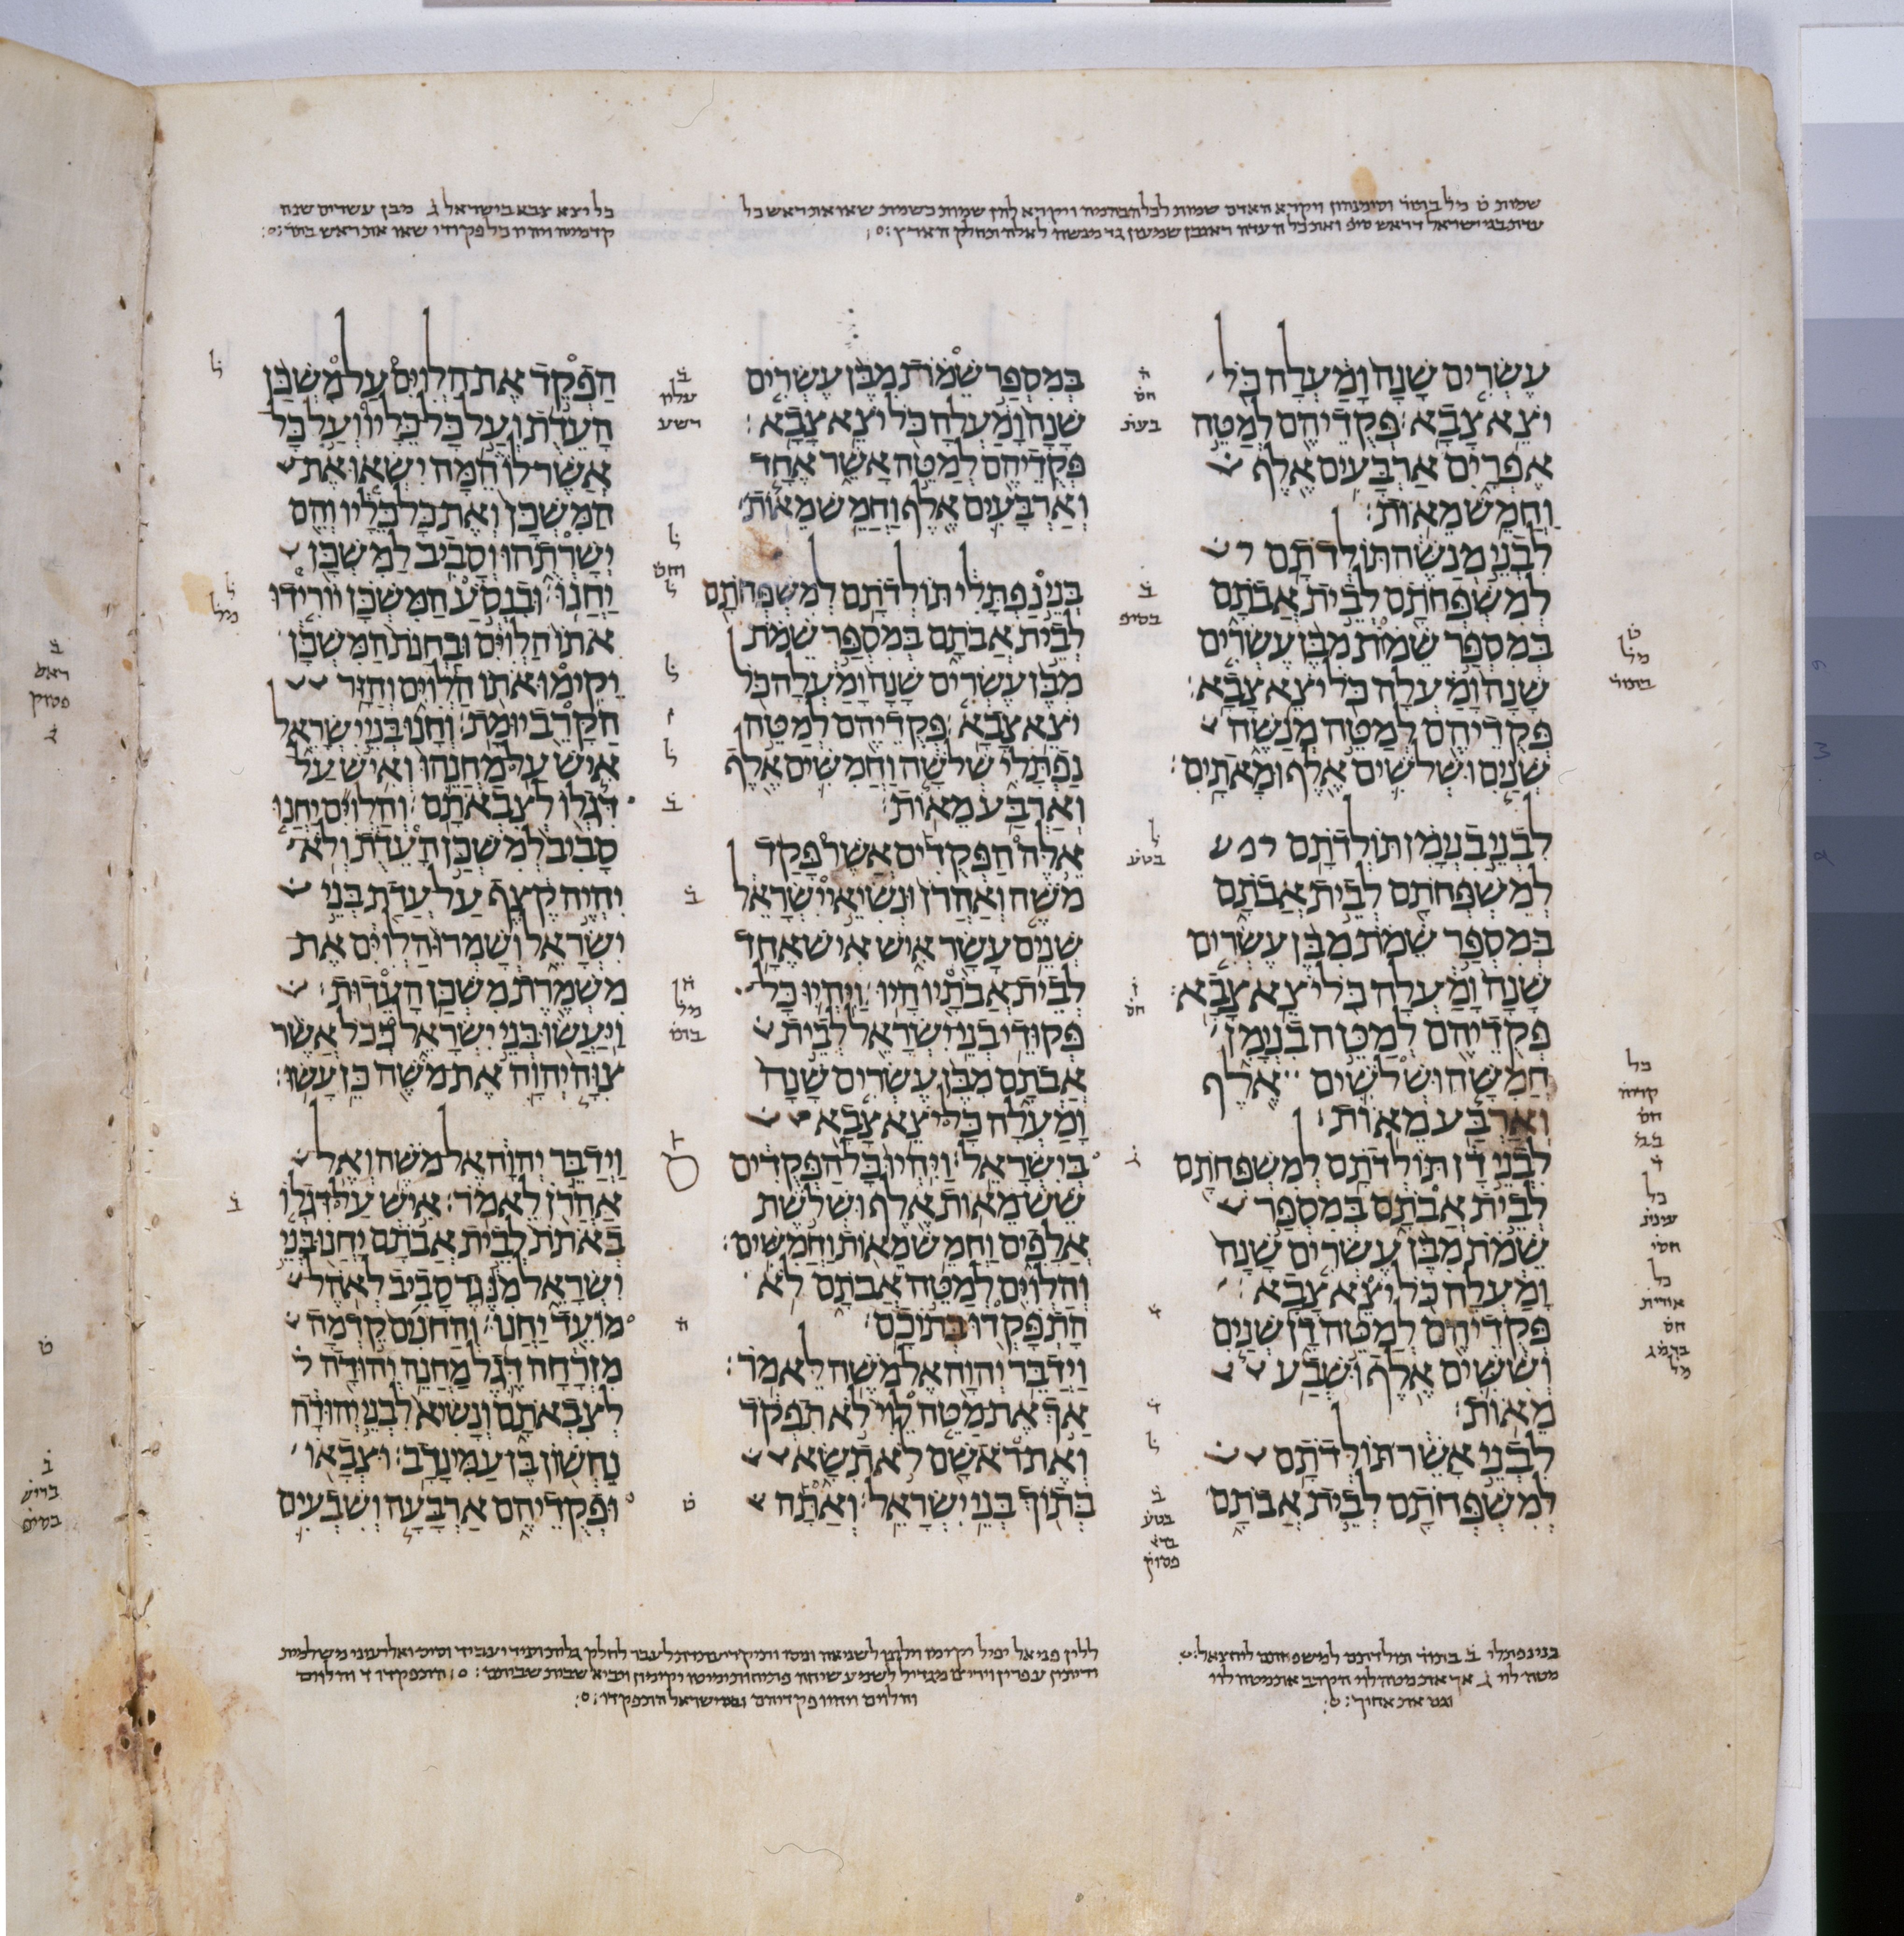 שמות ט מל בתור וסימנהון ויקרא האדם שמות לכל הבהמה ויקרא להן שמות כשמות שאו את ראש כל
עדת בני ישראל דראש סיפ ואת כל העדה ראובן שמעון גד מנשה לאלה תחלק הארץ
כל יצא צבא בישראל ג מבן עשרים שנה
קדמיה ויהיו כל פקודי שאו את ראש
עֶשְׂרִים שָׁנָה וָמַעְלָה כֹּל
יֹצֵא צָבָא׃ פְּקֻדֵיהֶם לְמַטֵּה
אֶפְרָיִם אַרְבָּעִים אֶלֶף
וַחֲמֵשׁ מֵאוֹת׃
לִבְנֵי מְנַשֶּׁה תּוֹלְדֹתָם
לְמִשְׁפְּחֹתָם לְבֵית אֲבֹתָם
בְּמִסְפַּר שֵׁמוֹת מִבֶּן עֶשְׂרִים
שָׁנָה וָמַעְלָה כֹּל יֹצֵא צָבָא׃
פְּקֻדֵיהֶם לְמַטֵּה מְנַשֶּׁה
שְׁנַיִם וּשְׁלֹשִׁים אֶלֶף וּמָאתָיִם׃
לִבְנֵי בִנְיָמִן תּוֹלְדֹתָם
לְמִשְׁפְּחֹתָם לְבֵית אֲבֹתָם
בְּמִסְפַּר שֵׁמֹת מִבֶּן עֶשְׂרִים
שָׁנָה וָמַעְלָה כֹּל יֹצֵא צָבָא׃
פְּקֻדֵיהֶם לְמַטֵּה בִנְיָמִן
חֲמִשָּׁה וּשְׁלֹשִׁים אֶלֶף
וְאַרְבַּע מֵאוֹת׃
לִבְנֵי דָן תּוֹלְדֹתָם לְמִשְׁפְּחֹתָם
לְבֵית אֲבֹתָם בְּמִסְפַּר
שֵׁמֹת מִבֶּן עֶשְׂרִים שָׁנָה
וָמַעְלָה כֹּל יֹצֵא צָבָא׃
פְּקֻדֵיהֶם לְמַטֵּה דָן שְׁנַיִם
וְשִׁשִּׁים אֶלֶף וּשְׁבַע
מֵאוֹת׃
לִבְנֵי אָשֵׁר תּוֹלְדֹתָם
לְמִשְׁפְּחֹתָם לְבֵית אֲבֹתָם
בְּמִסְפַּר שֵׁמֹת מִבֶּן עֶשְׂרִים
שָׁנָה וָמַעְלָה כֹּל יֹצֵא צָבָא׃
פְּקֻדֵיהֶם לְמַטֵּה אָשֵׁר אֶחָד
וְאַרְבָּעִים אֶלֶף וַחֲמֵשׁ מֵאוֹת׃
בְּנֵי נַפְתָּלִי תּוֹלְדֹתָם לְמִשְׁפְּחֹתָם
לְבֵית אֲבֹתָם בְּמִסְפַּר שֵׁמֹת
מִבֶּן עֶשְׂרִים שָׁנָה וָמַעְלָה כֹּל
יֹצֵא צָבָא׃ פְּקֻדֵיהֶם לְמַטֵּה
נַפְתָּלִי שְׁלֹשָׁה וַחֲמִשִּׁים אֶלֶף
וְאַרְבַּע מֵאוֹת׃
אֵלֶּה הַפְּקֻדִים אֲשֶׁר פָּקַד
מֹשֶׁה וְאַהֲרֹן וּנְשִׂיאֵי יִשְׂרָאֵל
שְׁנֵים עָשָׂר אִישׁ אִישׁ אֶחָד
לְבֵית אֲבֹתָיו הָיוּ׃ וַיִּהְיוּ כָּל
פְּקוּדֵי בְנֵי יִשְׂרָאֵל לְבֵית
אֲבֹתָם מִבֶּן עֶשְׂרִים שָׁנָה
וָמַעְלָה כָּל יֹצֵא צָבָא
בְּיִשְׂרָאֵל׃ וַיִּהְיוּ כָּל הַפְּקֻדִים
שֵׁשׁ מֵאוֹת אֶלֶף וּשְׁלֹשֶׁת
אֲלָפִים וַחֲמֵשׁ מֵאוֹת וַחֲמִשִּׁים׃
וְהַלְוִיִּם לְמַטֵּה אֲבֹתָם לֹא
הָתְפָּקְדוּ בְּתוֹכָם׃
וַיְדַבֵּר יְהוָה אֶל מֹשֶׁה לֵּאמֹר׃
אַךְ אֶת מַטֵּה לֵוִי לֹא תִפְקֹד
וְאֶת רֹאשָׁם לֹא תִשָּׂא
בְּתוֹךְ בְּנֵי יִשְׂרָאֵל׃ וְאַתָּה
הַפְקֵד אֶת הַלְוִיִּם עַל מִשְׁכַּן
הָעֵדֻת וְעַל כָּל כֵּלָיו וְעַל כָּל
אֲשֶׁר לוֹ הֵמָּה יִשְׂאוּ אֶת
הַמִּשְׁכָּן וְאֶת כָּל כֵּלָיו וְהֵם
יְשָׁרְתֻהוּ וְסָבִיב לַמִּשְׁכָּן
יַחֲנוּ׃ וּבִנְסֹעַ הַמִּשְׁכָּן יוֹרִידוּ
אֹתוֹ הַלְוִיִּם וּבַחֲנֹת הַמִּשְׁכָּן
יָקִימוּ אֹתוֹ הַלְוִיִּם וְהַזָּר
הַקָּרֵב יוּמָת׃ וְחָנוּ בְּנֵי יִשְׂרָאֵל
אִישׁ עַל מַחֲנֵהוּ וְאִישׁ עַל
דִּגְלוֹ לְצִבְאֹתָם׃ וְהַלְוִיִּם יַחֲנוּ
סָבִיב לְמִשְׁכַּן הָעֵדֻת וְלֹא
יִהְיֶה קֶצֶף עַל עֲדַת בְּנֵי
יִשְׂרָאֵל וְשָׁמְרוּ הַלְוִיִּם אֶת
מִשְׁמֶרֶת מִשְׁכַּן הָעֵדוּת׃
וַיַּעֲשׂוּ בְּנֵי יִשְׂרָאֵל כְּכֹל אֲשֶׁר
צִוָּה יְהוָה אֶת מֹשֶׁה כֵּן עָשׂוּ׃
וַיְדַבֵּר יְהוָה אֶל מֹשֶׁה וְאֶל
אַהֲרֹן לֵאמֹר׃ אִישׁ עַל דִּגְלוֹ
בְאֹתֹת לְבֵית אֲבֹתָם יַחֲנוּ בְּנֵי
יִשְׂרָאֵל מִנֶּגֶד סָבִיב לְאֹהֶל
מוֹעֵד יַחֲנוּ׃ וְהַחֹנִים קֵדְמָה
מִזְרָחָה דֶּגֶל מַחֲנֵה יְהוּדָה
לְצִבְאֹתָם וְנָשִׂיא לִבְנֵי יְהוּדָה
נַחְשׁוֹן בֶּן עַמִּינָדָב׃ וּצְבָאוֹ
וּפְקֻדֵיהֶם אַרְבָּעָה וְשִׁבְעִים
בני נפתלי ב בתור תולדתם למשפחתם יחצאל
מטה לוי ג אך את מטה לוי הקרב את מטה לוי
וגם את אחיך